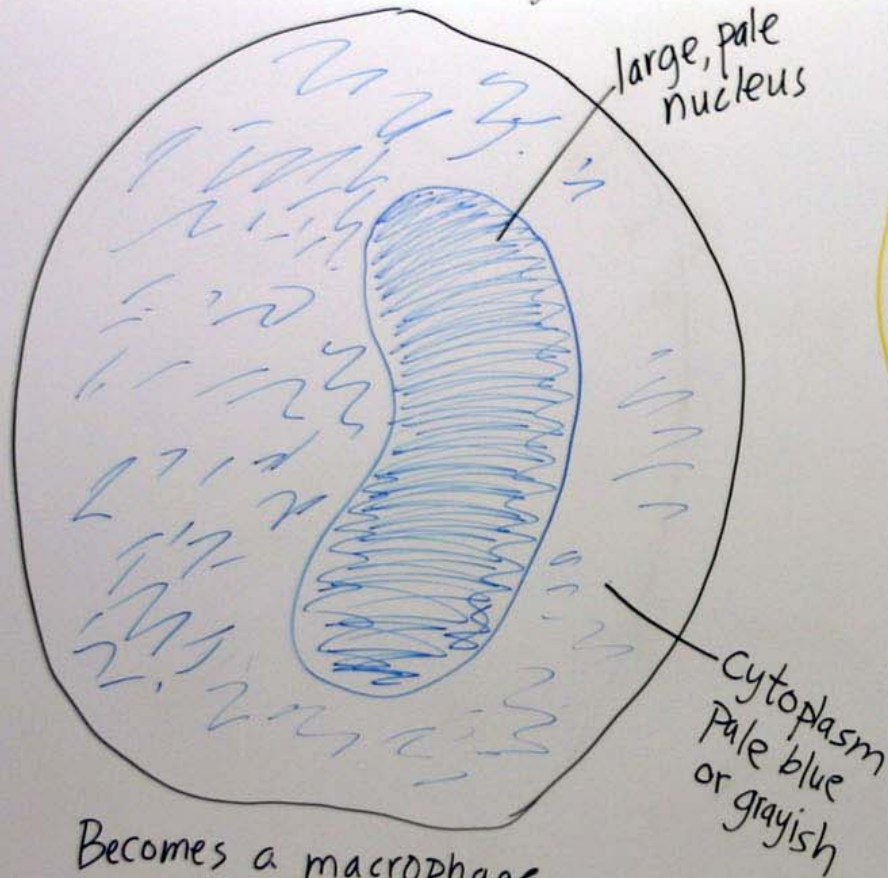 large, pale
nucleus
Cytoplasm
Pale blue
or grayish
Becomes a macrophage